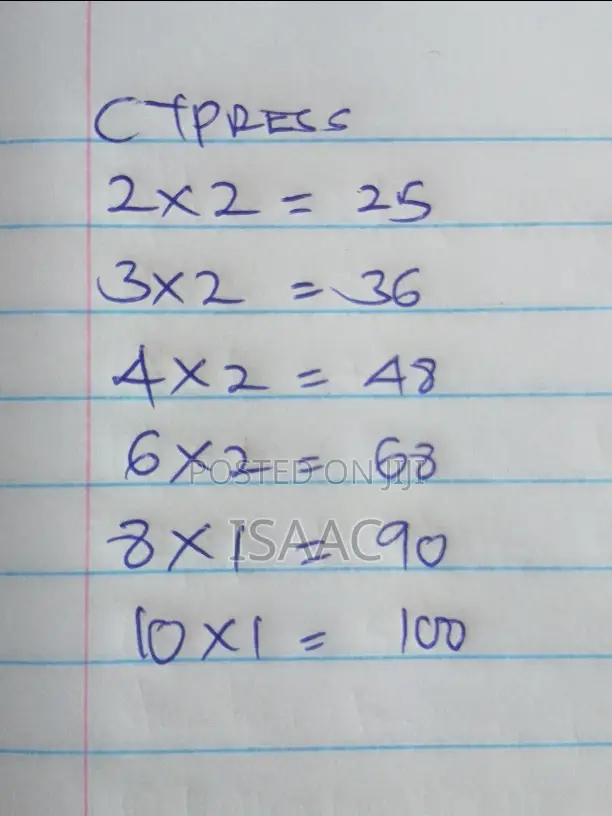 CYPRESS
2x2 = 25
3x2 = 36
4x2 = 48
6x2 = 68
POSTED ON JIJI
8x1 = 90
ISAAC
10x1 = 100